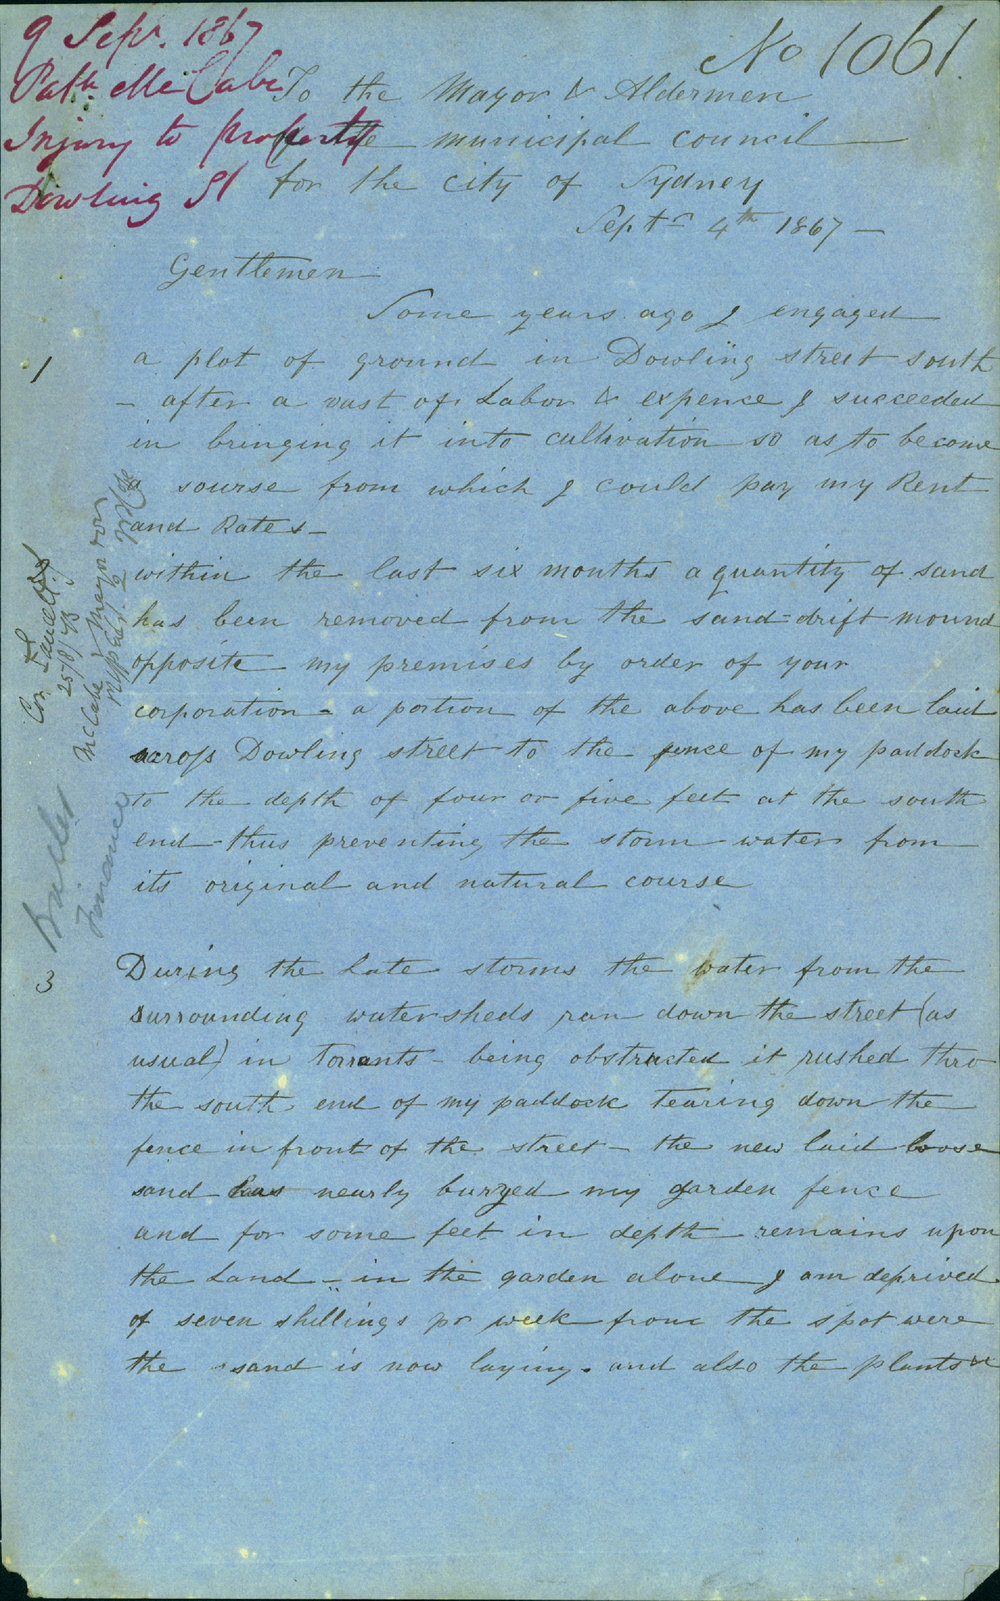 9 Sepr. 1867
Patk McCabe
Injury to property
Dowling St
No 1061.
To the Mayor & Aldermen
of the municipal council
for the city of Sydney
Septr 4th 1867 -
Gentlemen
Some years ago I engaged
1
a plot of ground in Dowling street south
- after a vast of Labor & expence I succeeded
in bringing it into cultivation so as to become
a sourse from which I could pay my Rent
and Rates -
within the last six months a quantity of sand
has been removed from the sand=drift mound
opposite my premises by order of your
corporation - a portion of the above has been laid
across Dowling street to the fence of my paddock
to the depth of four or five feet at the south
end - thus preventing the storm water from
its original and natural course
3
During the late storms the water from the
surrounding watersheds ran down the street (as
usual) in Torrents - being obstructed it rushed thro
the south end of my paddock Tearing down the
fence in front of the street - the new laid loose
sand has nearly buryed my garden fence
and for some feet in depth remains upon
the Land - in the garden alone I am deprived
of seven shillings pr week from the spot were
the sand is now laying. and also the plants &
25/8/43
McCabe
Finance